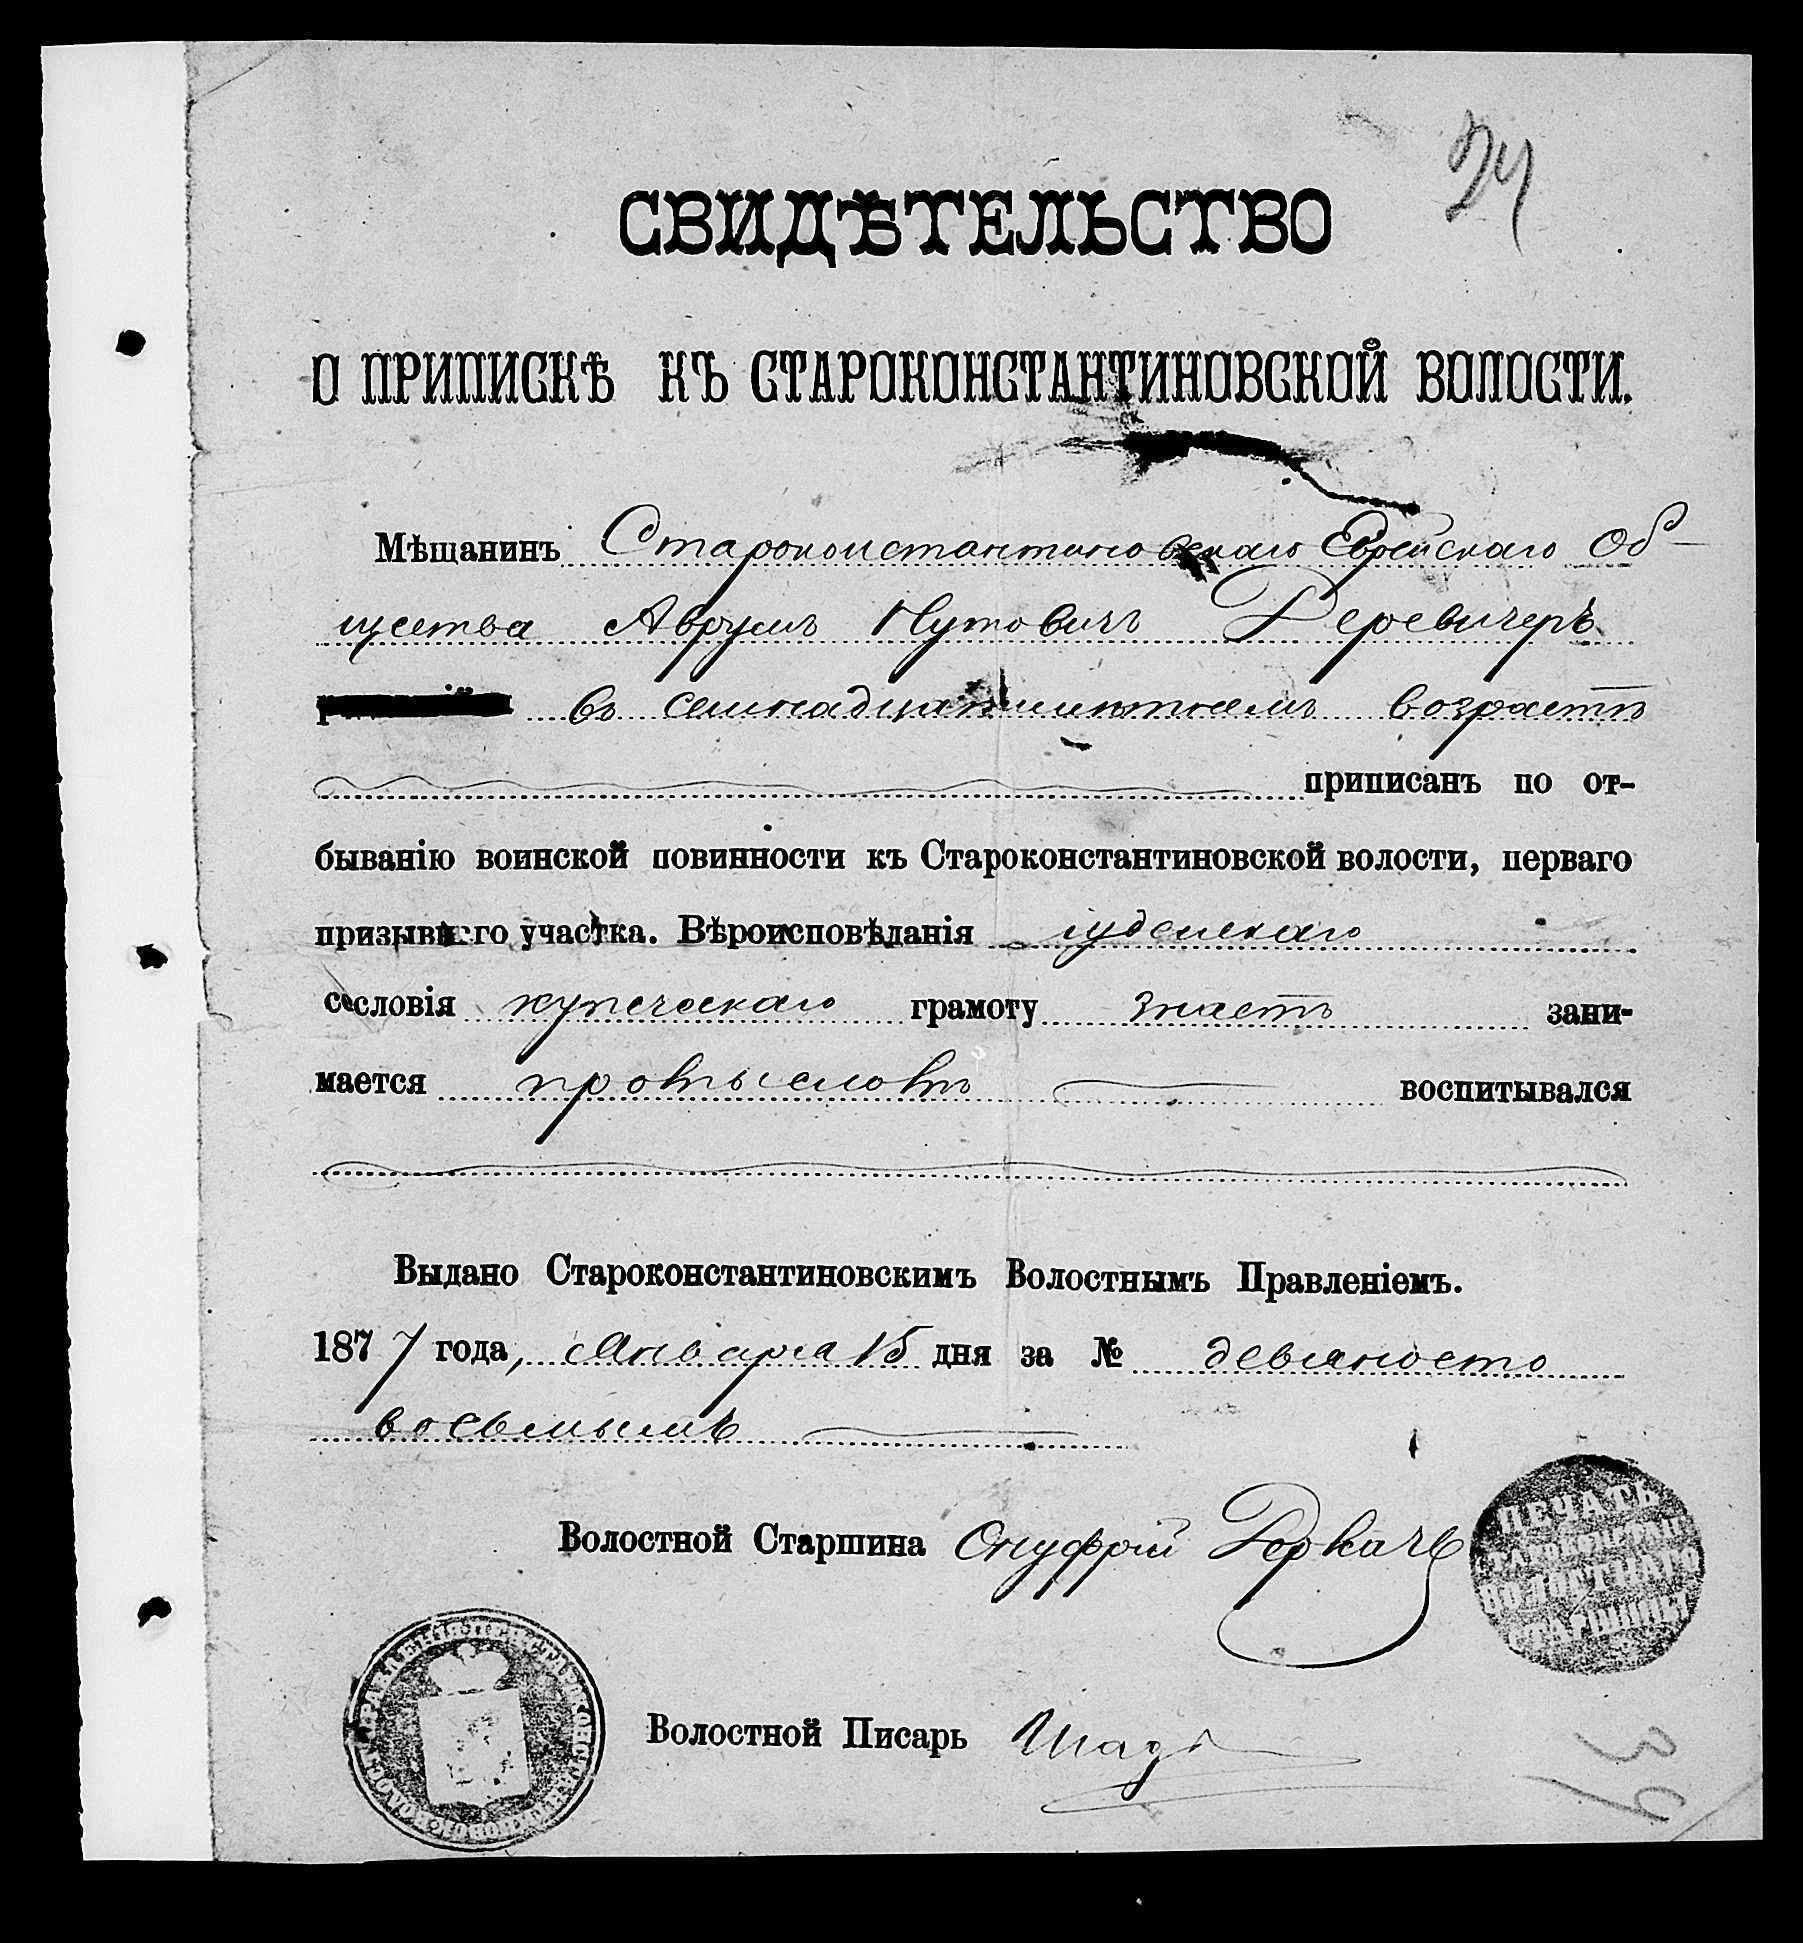 24
СВИДѢТЕЛЬСТВО
О ПРИПИСКѢ КЪ СТАРОКОНСТАНТИНОВСКОЙ ВОЛОСТИ.
Мѣщанинъ Староконстантиновскаго Еврейскаго Об-
щества Аврумъ Нутовичъ Деревичеръ
въ семнадцатилѣтнемъ возрастѣ
приписанъ по от-
быванію воинской повинности къ Староконстантиновской волости, перваго
призывнаго участка. Вѣроисповѣданія іудейскаго
сословія купеческаго грамоту знаетъ зани-
мается воспитывался
Выдано Староконстантиновскимъ Волостнымъ Правленіемъ.
1877 года, Января 15 дня за № девяносто
восьмымъ
Волостной Старшина Онуфрій Деркачъ
ПЕЧАТЬ
ВОЛОСТНАГО
СТАРШИНЫ
Волостной Писарь
39